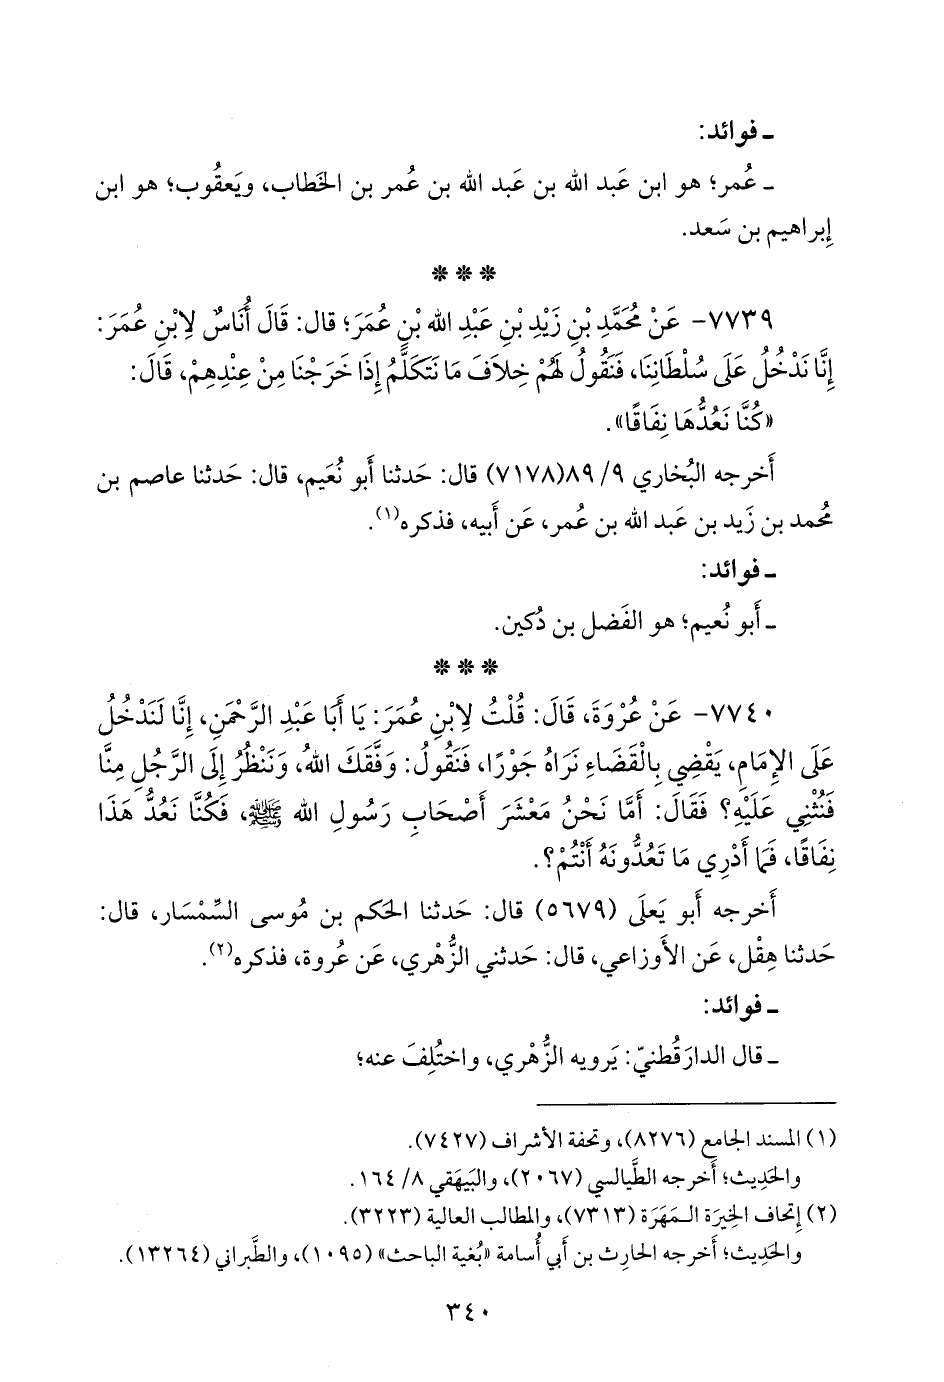 ـ فوائد:
ـ عُمر؛ هو ابن عَبد الله بن عَبد الله بن عُمر بن الخَطاب، ويَعقُوب؛ هو ابن
إِبراهيم بن سَعد.
* * *
٧٧٣٩- عَنْ مُحَمَّدِ بْنِ زَيْدِ بْنِ عَبْدِ الله بْنِ عُمَرَ؛ قال: قَالَ أُنَاسٌ لِابْنِ عُمَرَ:
إِنَّا نَدْخُلُ عَلَى سُلْطَانِنَا، فَنَقُولُ لَهُمْ خِلَافَ مَا نَتَكَلَّمُ إِذَا خَرَجْنَا مِنْ عِنْدِهِمْ، قَالَ:
«كُنَّا نَعُدُّهَا نِفَاقًا».
أَخرجه البُخاري ٩/ ٨٩(٧١٧٨) قال: حَدثنا أَبو نُعَيم، قال: حَدثنا عاصم بن
مُحمد بن زَيد بن عَبد الله بن عُمر، عَن أَبيه، فذكره(١).
ـ فوائد:
ـ أَبو نُعيم؛ هو الفَضل بن دُكين.
* * *
٧٧٤٠- عَنْ عُرْوَةَ، قَالَ: قُلْتُ لِابْنِ عُمَرَ: يَا أَبَا عَبْدِ الرَّحْمَنِ، إِنَّا لَنَدْخُلُ
عَلَى الإِمَامِ، يَقْضِي بِالْقَضَاءِ نَرَاهُ جَوْرًا، فَنَقُولُ: وَفَّقَكَ اللهُ، وَنَنْظُرُ إِلَى الرَّجُلِ مِنَّا
فَنُثْنِي عَلَيْهِ؟ فَقَالَ: أَمَّا نَحْنُ مَعْشَرَ أَصْحَابِ رَسُولِ الله ﷺ، فَكُنَّا نَعُدُّ هَذَا
نِفَاقًا، فَمَا أَدْرِي مَا تَعُدُّونَهُ أَنْتُمْ؟.
أَخرجه أَبو يَعلَى (٥٦٧٩) قال: حَدثنا الحَكم بن مُوسى السِّمْسَار، قال:
حَدثنا هِقْل، عَن الأَوزاعي، قال: حَدثني الزُّهْري، عَن عُروة، فذكره(٢).
ـ فوائد:
ـ قال الدارَقُطنيّ: يَرويه الزُّهْري، واختُلِفَ عنه؛
(١) المسند الجامع (٨٢٧٦)، وتحفة الأشراف (٧٤٢٧).
والحَدِيث؛ أَخرجه الطَّيالسي (٢٠٦٧)، والبَيهَقي ٨/ ١٦٤.
(٢) إِتحاف الخِيرَة الـمَهَرَة (٧٣١٣)، والمطالب العالية (٣٢٢٣).
والحَدِيث؛ أَخرجه الحارِث بن أَبي أُسامة «بُغية الباحث» (١٠٩٥)، والطَّبراني (١٣٢٦٤).
٣٤٠